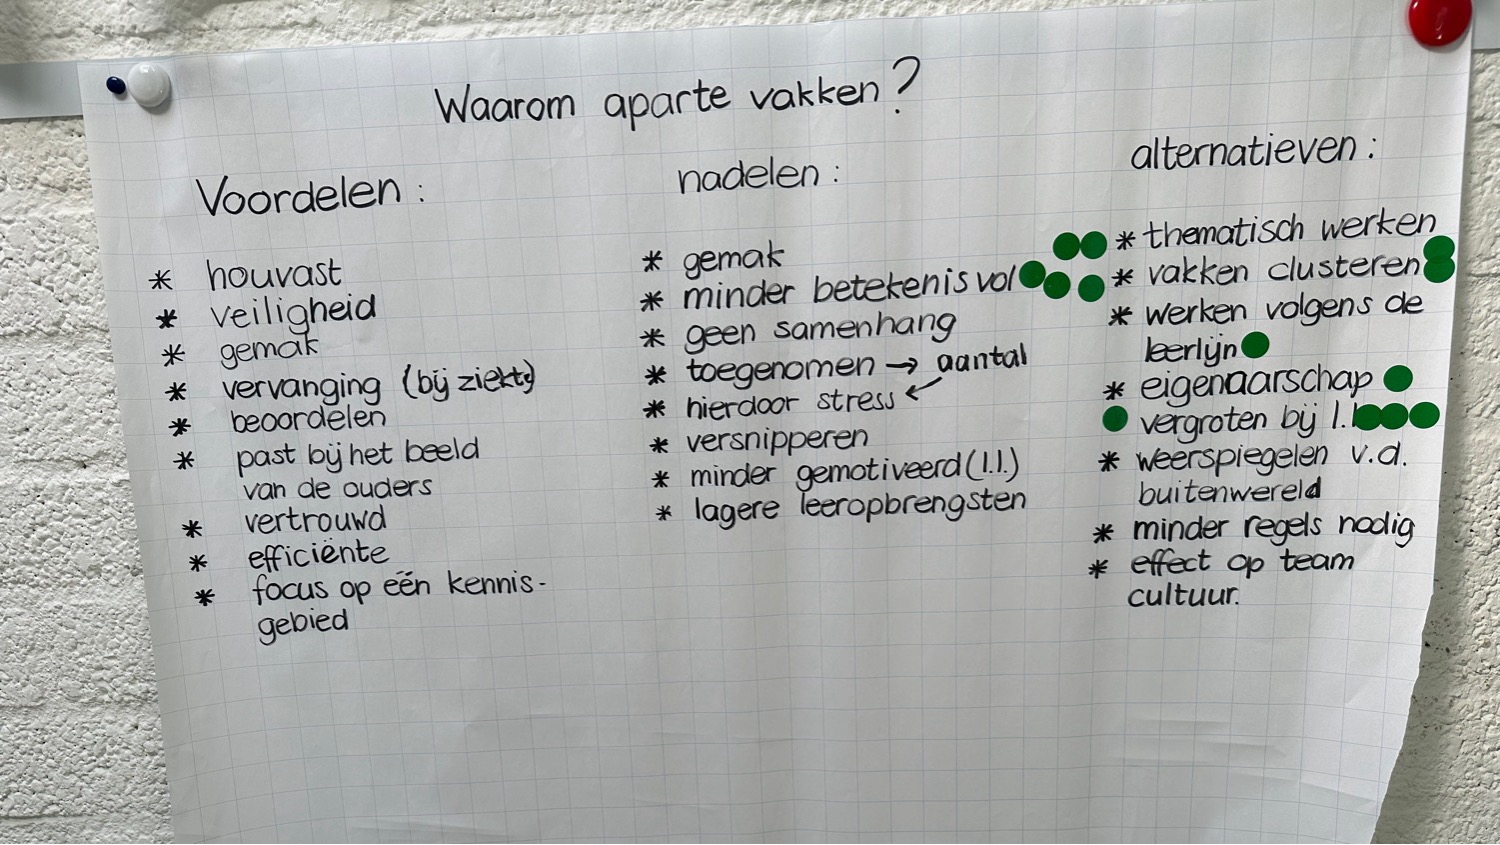 Waarom aparte vakken?
Voordelen:
* houvast
* veiligheid
* gemak
* vervanging (bij ziekte)
* beoordelen
* past bij het beeld
van de ouders
* vertrouwd
* efficiënte
* focus op één kennis-
gebied
nadelen:
* gemak
* minder betekenisvol
* geen samenhang
* toegenomen → aantal
* hierdoor stress ↙
* versnipperen
* minder gemotiveerd (l.l.)
* lagere leeropbrengsten
alternatieven:
* thematisch werken
* vakken clusteren
* werken volgens de
leerlijn
* eigenaarschap
vergroten bij l.
* weerspiegelen v.d.
buitenwereld
* minder regels nodig
* effect op team
cultuur.